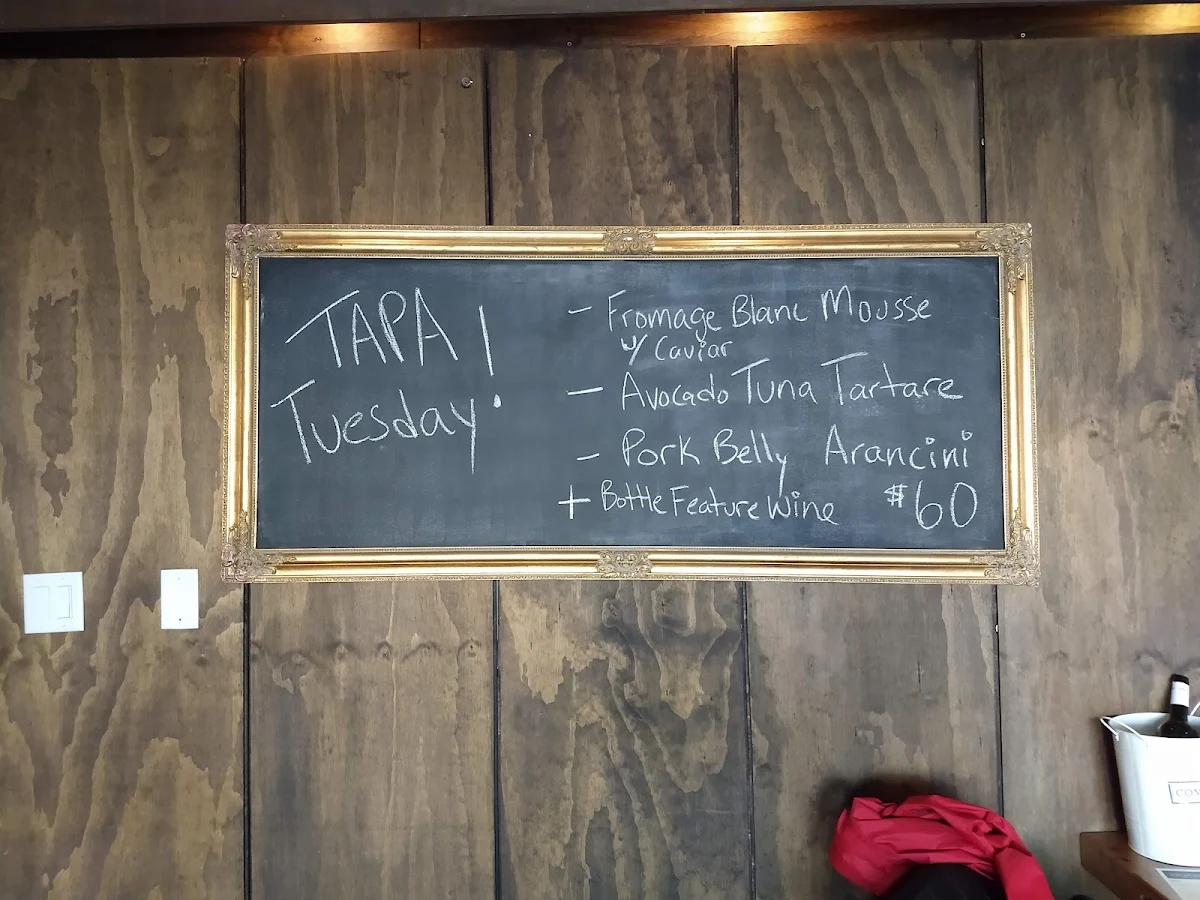 TAPA
Tuesday!
- Fromage Blanc Mousse
w/ Caviar
- Avocado Tuna Tartare
- Pork Belly Arancini
+ Bottle Feature Wine $60